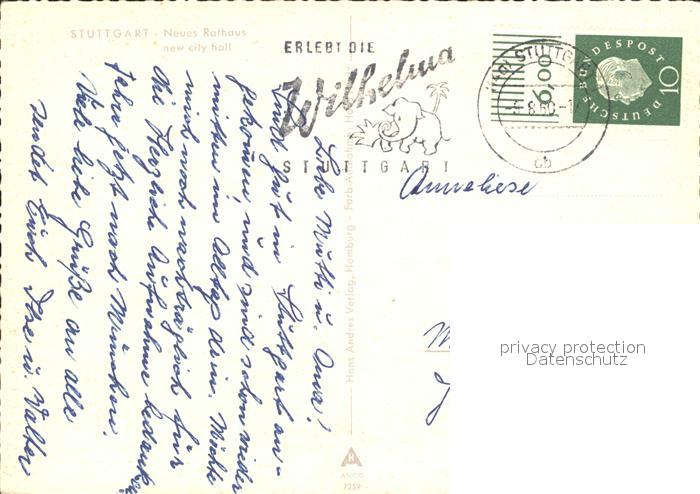 STUTTGART · Neues Rathaus
new city hall
ERLEBT DIE
Wilhelma
STUTTGART
STUTTGART
8.60
cb
6,00
DEUTSCHE BUNDESPOST
10
Liebe Mutti u. Oma!
Sind gut in Stuttgart an-
gekommen, und sind schon wieder
mitten im Alltag drin. Möchte
mich noch nachträglich für
die herzliche Aufnahme bedanken.
Fahre jetzt nach München.
Viele liebe Grüße an alle
sendet Euch Ilse u. Walter
Anneliese
Hans Andres Verlag, Hamburg · Farb-Aufnahme
ANCO
7259
privacy protection
Datenschutz